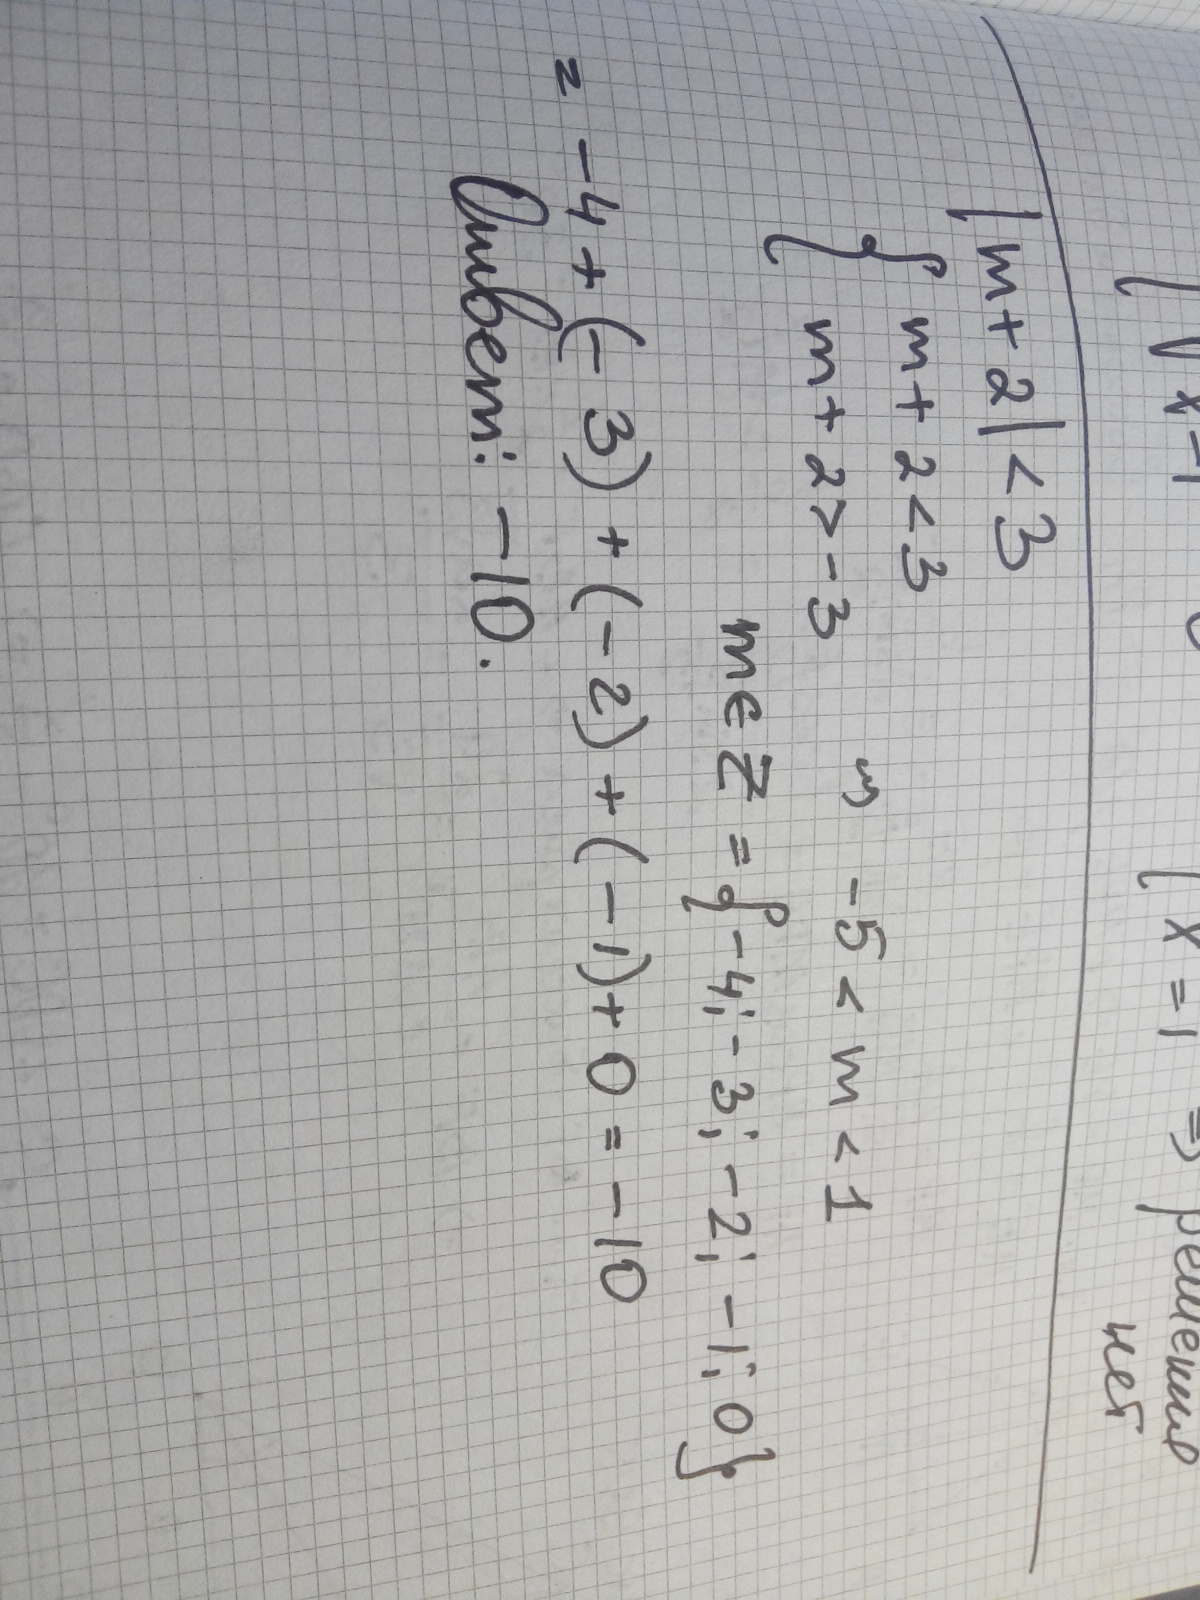 { √x-1 0 { x = 1 ⇒ решений
нет
|m+2|<3
{ m+2<3
m+2>-3 ⇒ -5 < m < 1
m∈Z = {-4; -3; -2; -1; 0}
= -4+(-3)+(-2)+(-1)+0=-10
Ответ: -10.